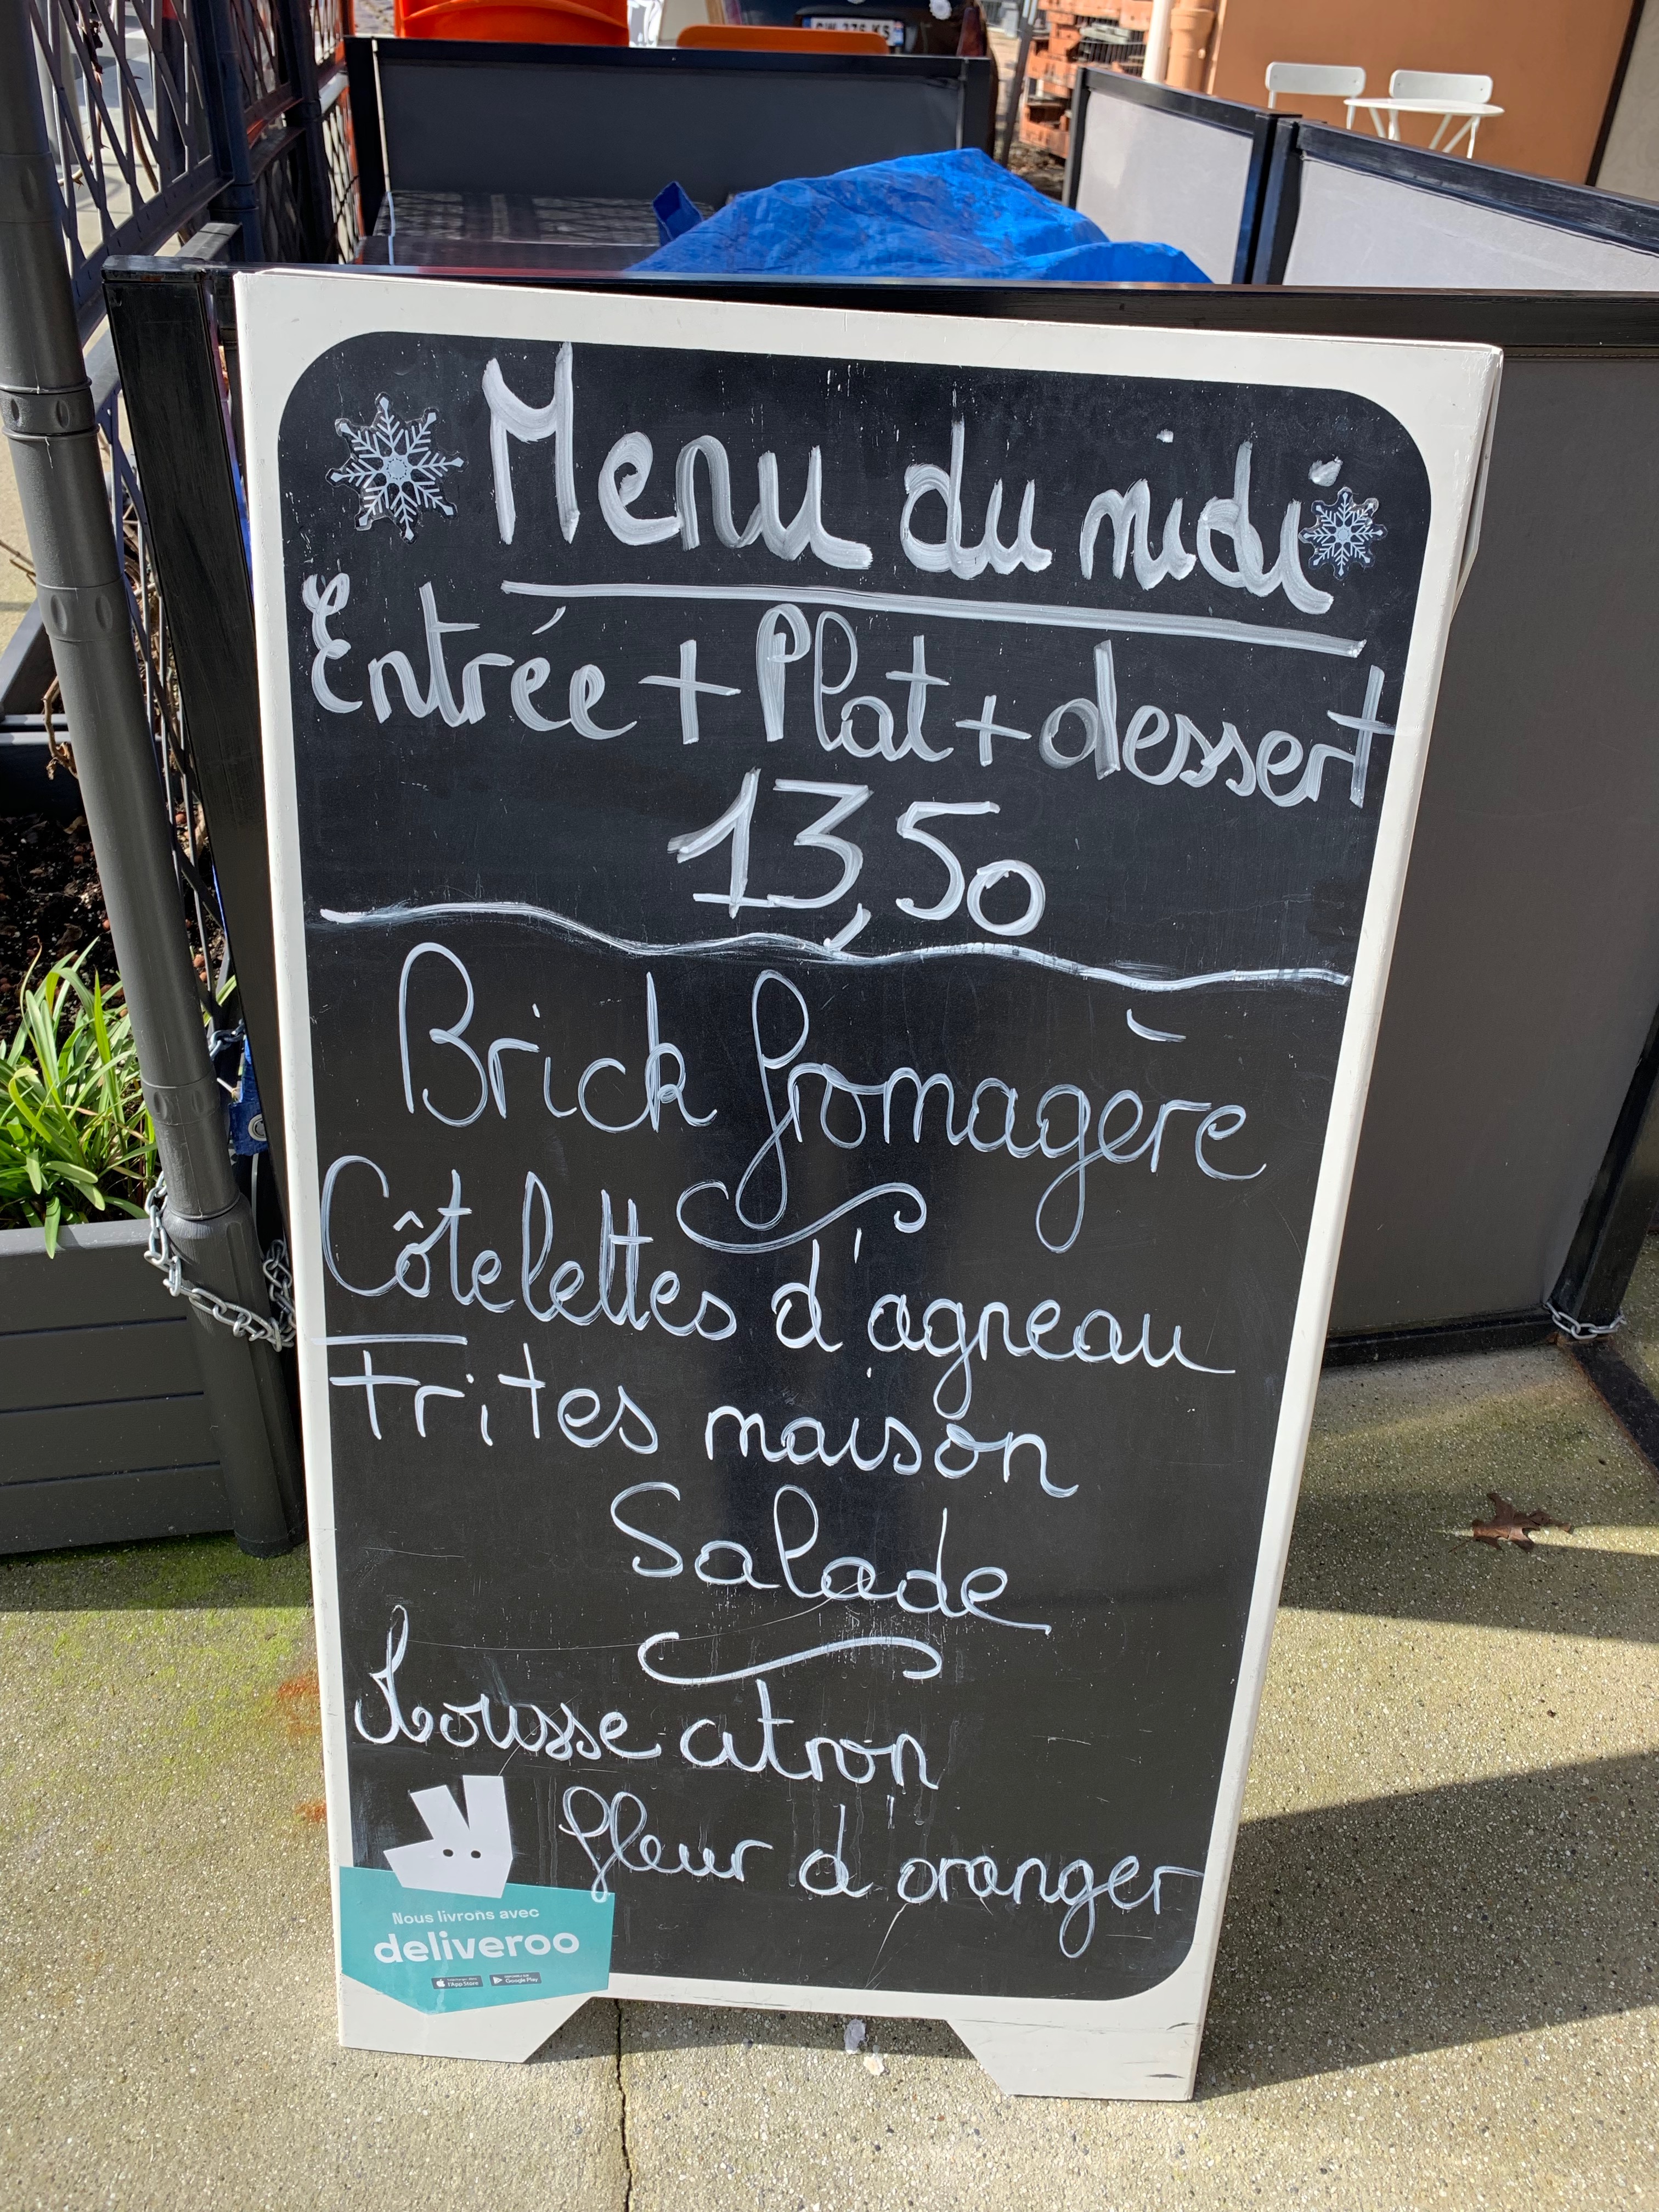 Menu du midi
Entrée + Plat + dessert
13,50
Brick fromagère
Côtelettes d'agneau
Frites maison
Salade
Mousse citron
fleur d'oranger
Nous livrons avec
deliveroo
l'App Store
Google Play